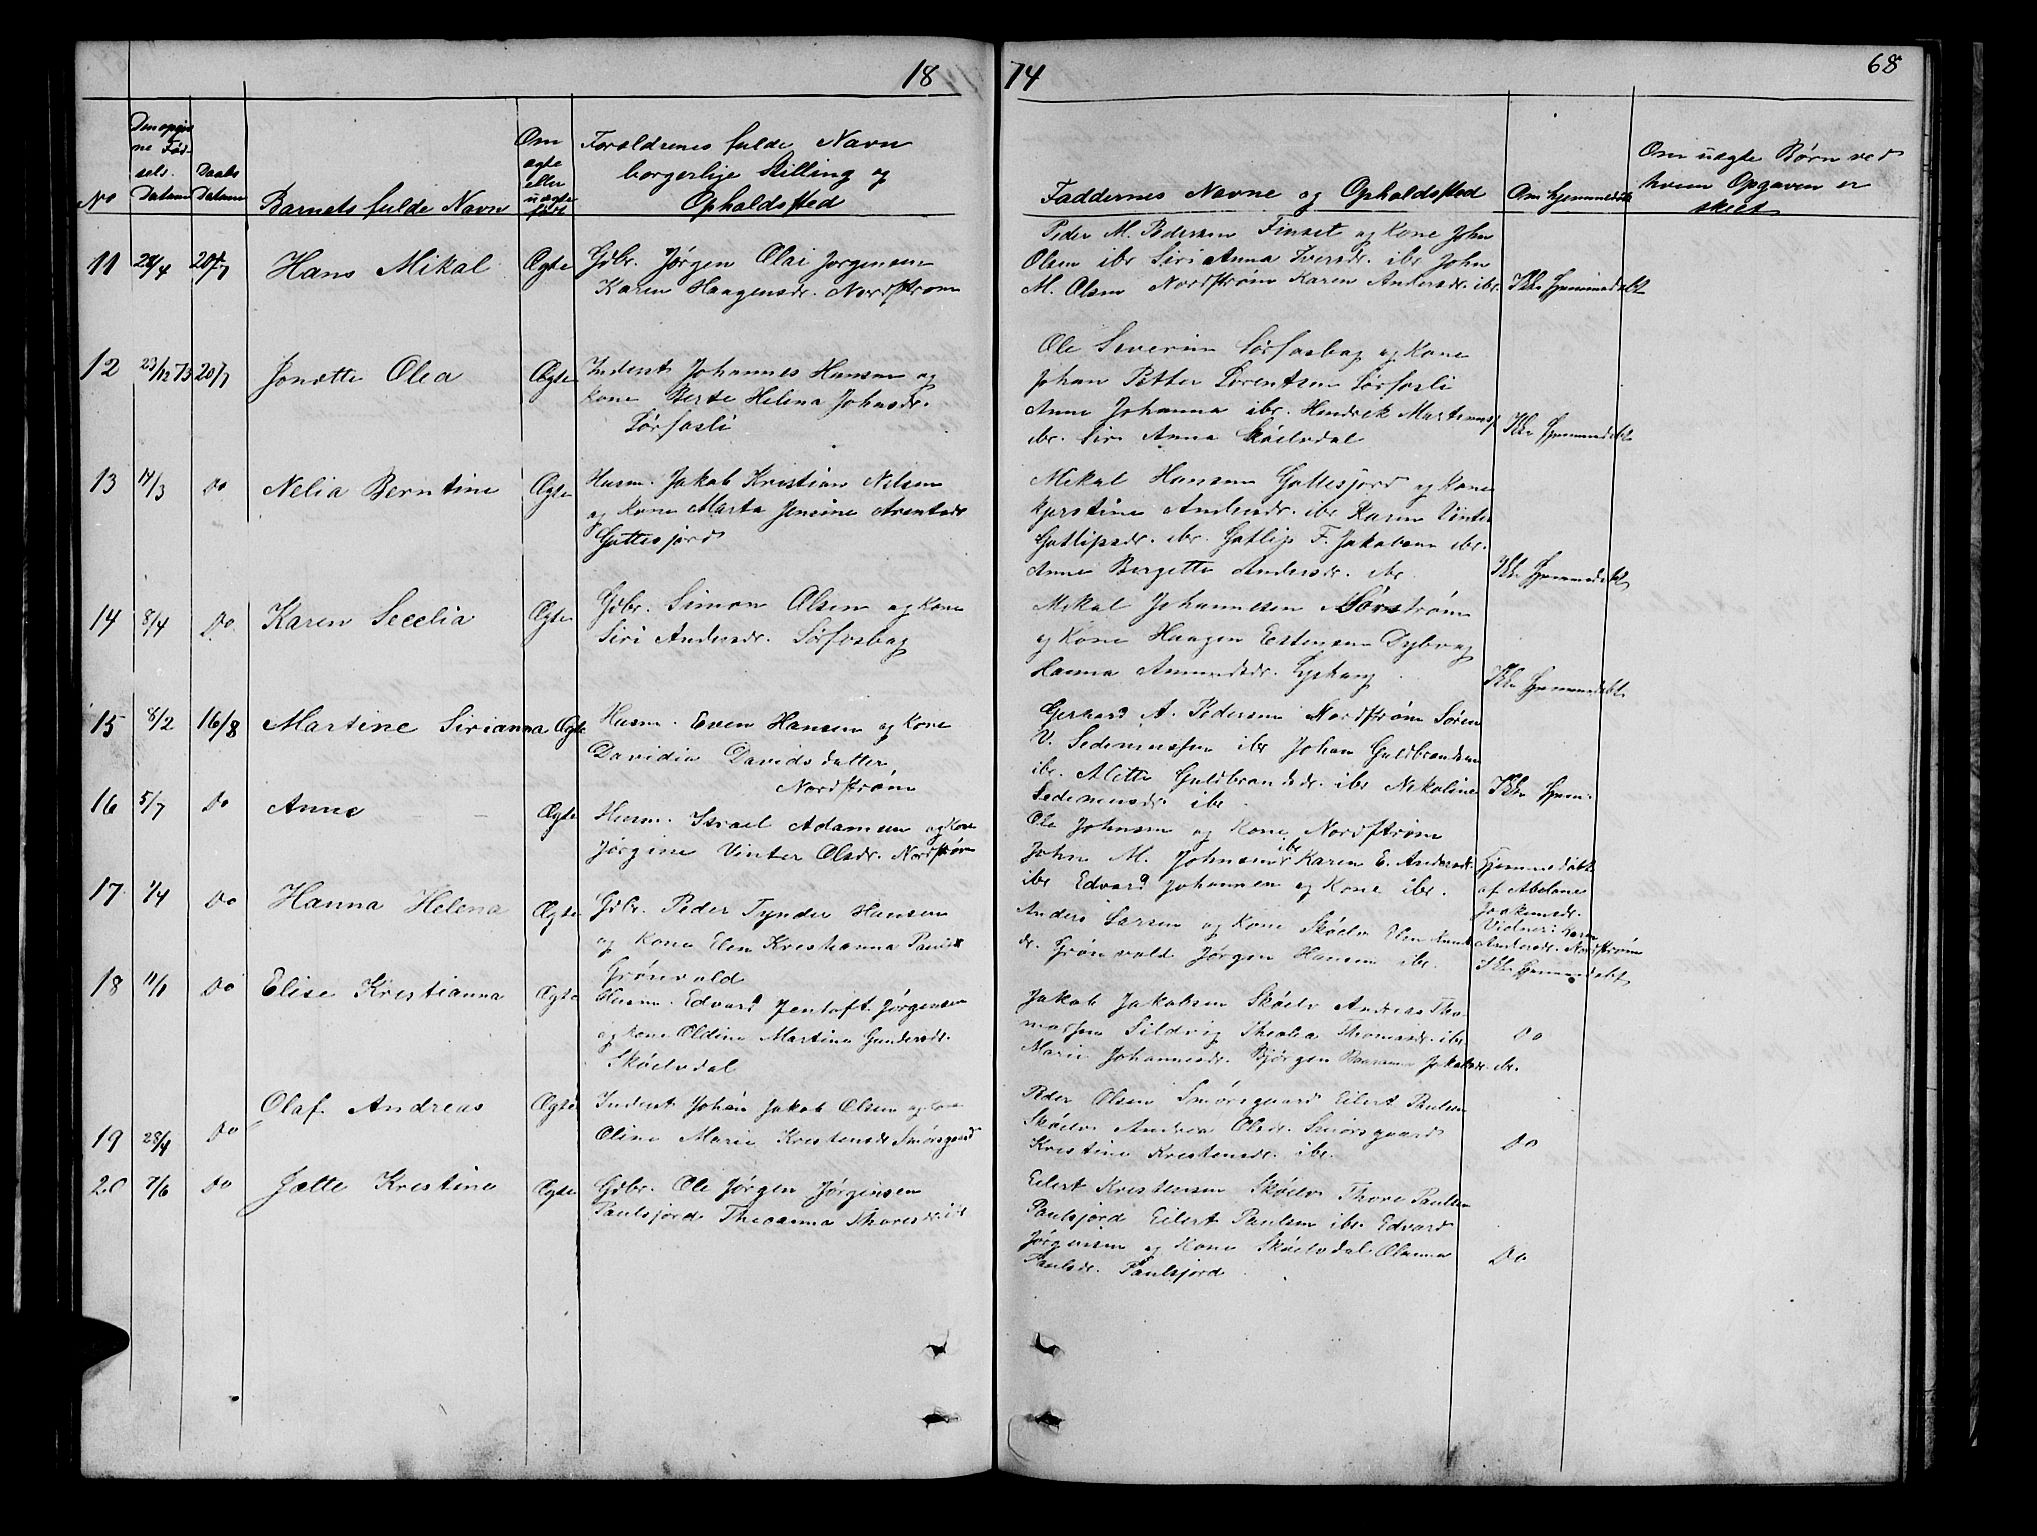 18 74
68
No
Den opgiv
ne Fød-
sels.
Datum
Daabs
Datum
Barnets fulde Navn
Om
ægte
eller
uægte
født
Forældrenes fulde Navn
borgerlige Stilling og
Opholdssted
Faddernes Navne og Opholdssted
Om hjemmedøbt
Om uægte Børn ved
hvem Opgaven er
skeet
11 20/7 Hans Mikal Ægte
Gdbr. Jørgen Olai Jørgensen
Karen Haagensdr. Nordstrøm
Peder M. Pedersen Finset og Kone John
Olsen ibr Siri Anna Iversdr. ibr John
M. Olsen Nordstrøm Karen Andersdr. ibr.
Ikke hjemmedøbt
12 23/12 73 20/7 Jonette Olea Ægte
Inderst Johannes Hansen og
Kone Berte Helena Johnsdr.
Sørfasli
Ole Severin Sørfosbag og Kone
Johan Petter Lorentsen Sørfosli
Anne Johanna ibr. Hendrek Martinus
ibr. Siri Anna Skøelvdal
Ikke hjemmedøbt
13 14/3 Do Nelia Berntine Ægte
Husm. Jakob Kristian Nilsen
og Kone Marta Jensine Arentsdr
Gottesjord
Mikal Hansen Gottesjord og Kone
Kjerstine Andersdr. ibr Karen Vinter
Gotlipsdr. ibr. Gotlip F. Jakobsen ibr.
Anne Bergitte Andersdr. ibr
Ikke hjemmedøbt
14 8/4 Do Karen Secelia Ægte
Gdbr. Simon Olsen og Kone
Siri Andersdr. Sørfosbag
Mikal Johannesen Sørstrøm
og Kone Haagen Estensen Dybvag
Hanna Amundsdr.
Ikke hjemmedøbt
15 8/2 16/8 Martine Sirianna Ægte
Husm. Even Hansen og Kone
Davidia Davidsdatter
Nordstrøm
Gerhard A. Pedersen Nordstrøm Søren
V. Sedeniussen ibr Johan Guldbrandsen
ibr. Mette Guldbrandsdr. ibr Nikoline
Sedeniusdr ibr.
Ikke hjem.
16 5/7 Do Anne Ægte
Husm. Israel Adamsen og Kone
Jørgine Vinter Olsdr. Nordstrøm
Ole Johnsen og Kone Nordstrøm
John M. Johnsen ibr Karen E. Andersdr.
ibr Edvard Johansen og Kone ibr.
Hjemmedøbt
af Abelone
Joakimsdr.
Vidner: Karen
Andersdr. Nordstrøm
17 1/4 Do Hanna Helena Ægte
Gdbr. Peder Tynder Hansen
og Kone Elen Kristianna Paulsdr
Grønvold
Anders Larsen og Kone Skøelv Elen
dr. Grønvold Jørgen Hansen ibr.
Ikke hjemmedøbt
18 11/1 Do Elise Kristianna Ægte
Husm. Edvard Jentoft Jørgensen
og Kone Oldine Martine Gundersdr.
Skøelvdal
Jakob Jakobsen Skøelv Andreas Tho-
massen Sildvig Thealea Thomasdr. ibr
Marie Johannesdr. Bjørgen Jakobsdr. ibr.
Do
19 28/4 Do Olaf Andreas Ægte
Inderst Johan Jakob Olsen og Kone
Oline Marie Kristensdr Smørsgaard
Peder Olsen Smørsgaard Eilert Paulsen
Skøelv Andrea Olsdr. Smørsgaard
Kristine Kristensdr. ibr.
Do
20 7/6 Do Jætte Kristine Ægte
Gdbr. Ole Jørgen Jørgensen
Paulsjord Theaanna Thoresdr. ibr
Eilert Kristensen Skøelv Thore Paulsen
Paulsjord Eilert Paulsen ibr. Edvard
Jørgensen og Kone Skøelvdal Olianna
Paulsdr. Paulsjord
Do